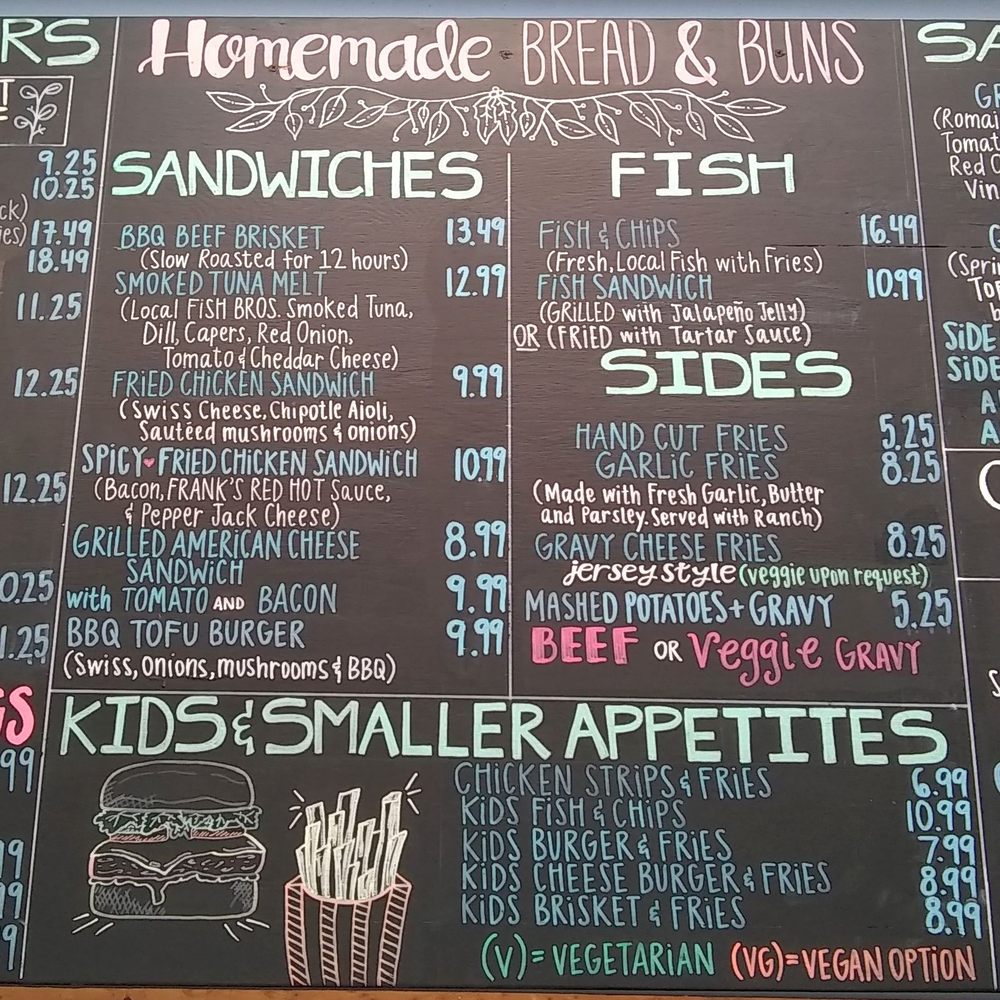 RS
9.25
10.25
ck)
ies) 17.49
18.49
11.25
12.25
12.25
0.25
1.25
GS
99
Homemade BREAD & BUNS
SANDWICHES
BBQ BEEF BRISKET 13.49
(Slow Roasted for 12 hours)
SMOKED TUNA MELT 12.99
(Local FISH BROS. Smoked Tuna,
Dill, Capers, Red Onion,
Tomato & Cheddar Cheese)
FRIED CHICKEN SANDWICH 9.99
(Swiss Cheese, Chipotle Aioli,
Sautéed mushrooms & onions)
SPICY FRIED CHICKEN SANDWICH 10.99
(Bacon, FRANK'S RED HOT Sauce,
& Pepper Jack Cheese)
GRILLED AMERICAN CHEESE 8.99
SANDWICH
with TOMATO AND BACON 9.99
BBQ TOFU BURGER 9.99
(Swiss, Onions, mushrooms & BBQ)
FISH
FISH & CHIPS 16.49
(Fresh, Local Fish with Fries)
FISH SANDWICH 10.99
(GRILLED with Jalapeño Jelly)
OR (FRIED with Tartar Sauce)
SIDES
HAND CUT FRIES 5.25
GARLIC FRIES 8.25
(Made with Fresh Garlic, Butter
and Parsley. Served with Ranch)
GRAVY CHEESE FRIES 8.25
jersey style (veggie upon request)
MASHED POTATOES + GRAVY 5.25
BEEF OR Veggie GRAVY
KIDS & SMALLER APPETITES
CHICKEN STRIPS & FRIES 6.99
KIDS FISH & CHIPS 10.99
KIDS BURGER & FRIES 7.99
KIDS CHEESE BURGER & FRIES 8.99
KIDS BRISKET & FRIES 8.99
(V) = VEGETARIAN (VG) = VEGAN OPTION
SA
GR
(Romai
Tomat
Red C
Vin
(Sprin
SIDE
SIDE